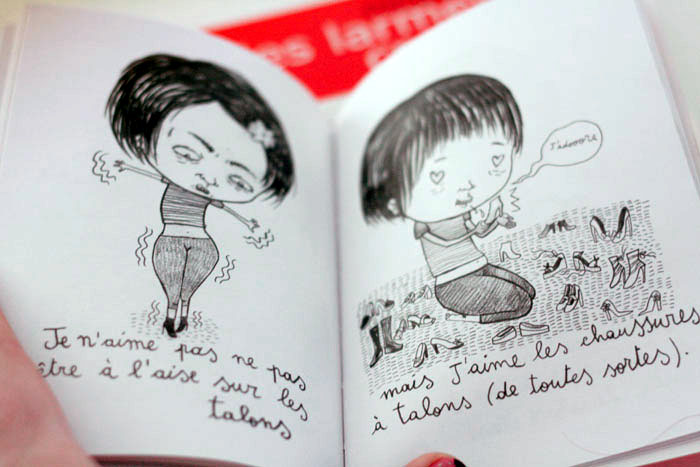 es larme
Je n'aime pas ne pas
être à l'aise sur les
talons
J'adooore
mais J'aime les chaussures
à talons (de toutes sortes).